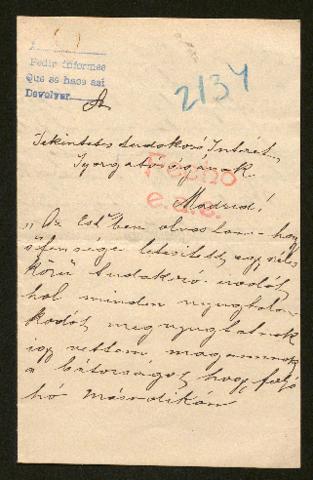 Pedir informes
Que se hace así
Devolver
2134
Tekintetes Tudakozó Intézet
Igazgatóságának
Hecho
Madrid!
e.a.c.
"Az Est"ben olvastam - hogy
őfensége létesített egy széles
körű tudakozó irodát
hol minden nyugtalan-
kodót megnyugtatnak
így vettem magamnak
a bátorságot hogy folyó
hó másodikán